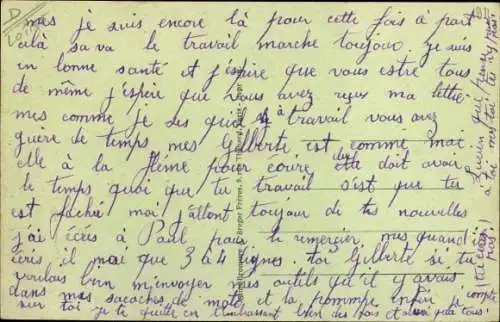 mes je suis encore là pour cette fois à part
cela sa va le travail marche toujour je suis
en bonne santé et j'éspire que vous estre tous
de même j'éspire que vous avez reçus ma lettre
mes comme je ses que travail vous avez
guère de temps mes Gilberte est comme moi
elle à la fléme pour écrire elle doit avoir
le temps quoi que tu travail s'est que tu
est faché moi j'attent toujour de tes nouvelles
j'ai écris à Paul pour le remercier mes quand il
écris il mai que 3 à 4 lignes. toi Gilberte si tu
voulais bien m'envoyer mes outils qu'il y avais
dans mes sacoches de moto et la pommpe enfin je compt
sur toi je te quitte en t'embrassant bien des fois et ainsi qua tous!
Lucien qui pense
à toi